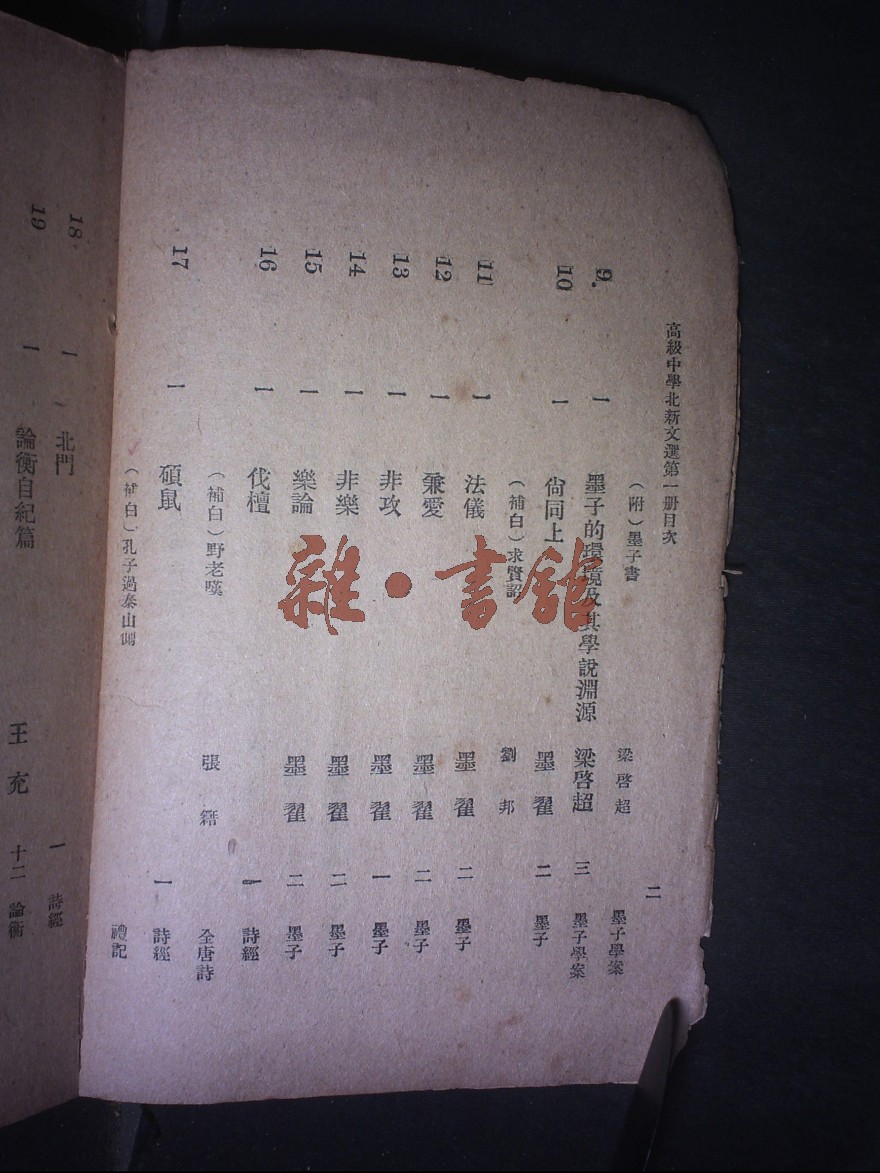 高級中學北新文選第一册目次 二
（附）墨子書 梁啓超 墨子學案
9. 一 墨子的環境及其學說淵源 梁啓超 三 墨子學案
10 一 尙同上 墨翟 二 墨子
（補白）求賢詔 劉邦
11 一 法儀 墨翟 二 墨子
12 一 兼愛 墨翟 二 墨子
13 一 非攻 墨翟 一 墨子
14 一 非樂 墨翟 二 墨子
15 一 樂論 墨翟 二 墨子
16 一 伐檀 一 詩經
（補白）野老嘆 張籍 全唐詩
17 一 碩鼠 一 詩經
（補白）孔子過泰山側 禮記
18 一 北門 一 詩經
19 一 論衡自紀篇 王充 十二 論衡
雜·書館